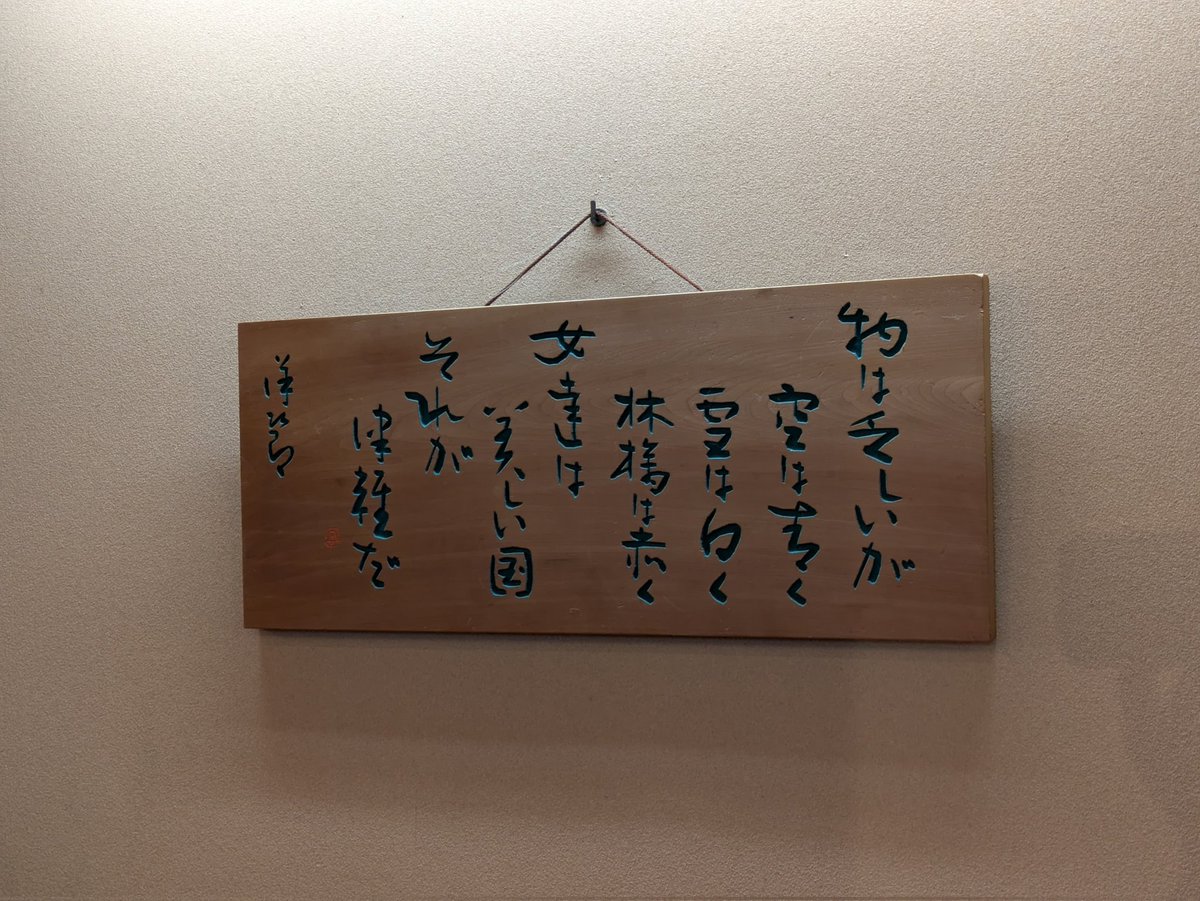 物は乏しいが
空は青く
雪は白く
林檎は赤く
女達は
美しい国
それが
津軽だ
洋次郎